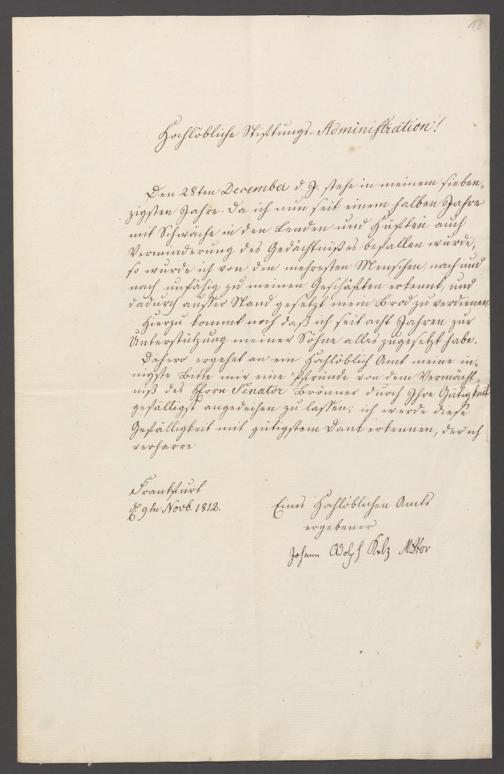 13
Hochlöbliche Stiftungs-Administration!
Den 28ten December d. J. stehe in meinem sieben-
zigsten Jahre. Da ich nun seit einem halben Jahre
mit Schwäche in den Lenden und Hüften auch
Verminderung des Gedächtnißes befallen wurde,
so wurde ich von den mehresten Menschen, nach und
nach unfähig zu meinen Geschäften erkennt, und
dadurch außer Stand gesetzt mein Brod zu verdienen
Hierzu kommt noch daß ich seit acht Jahren zur
Unterstützung meiner Söhne alles zugesetzt habe.
Dahero ergehet an ein Hochlöblich Amt meine in-
nigste Bitte mir eine Pfründe von dem Vermächt-
niß des Herrn Senator Brönner durch Ihre Gütigkeit
gefälligst angedeihen zu lassen; ich werde diese
Gefälligkeit mit gütigstem Dank erkennen, der ich
verharre
Frankfurt
d. 9ten Novb. 1812.
Eines Hochlöblichen Amts
ergebener
Johann Adolph